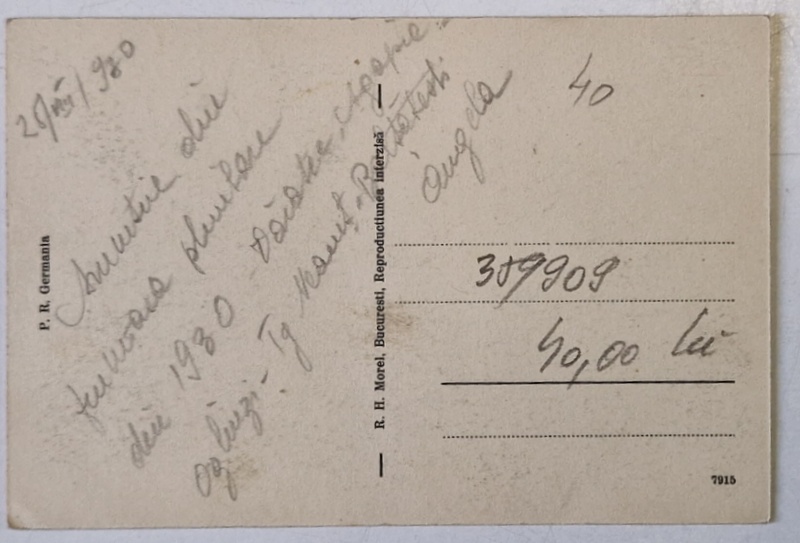 28/VIII/930
Amintire din
frumoasa plimbare
din 1930 Văratec, Agapia
Oglinzi. Tg Neamț - Băltătești
Angela
P. R. Germania
R. H. Morel, Bucuresti, Reproductiunea interzisă
40
389909
40,00 lei
7915